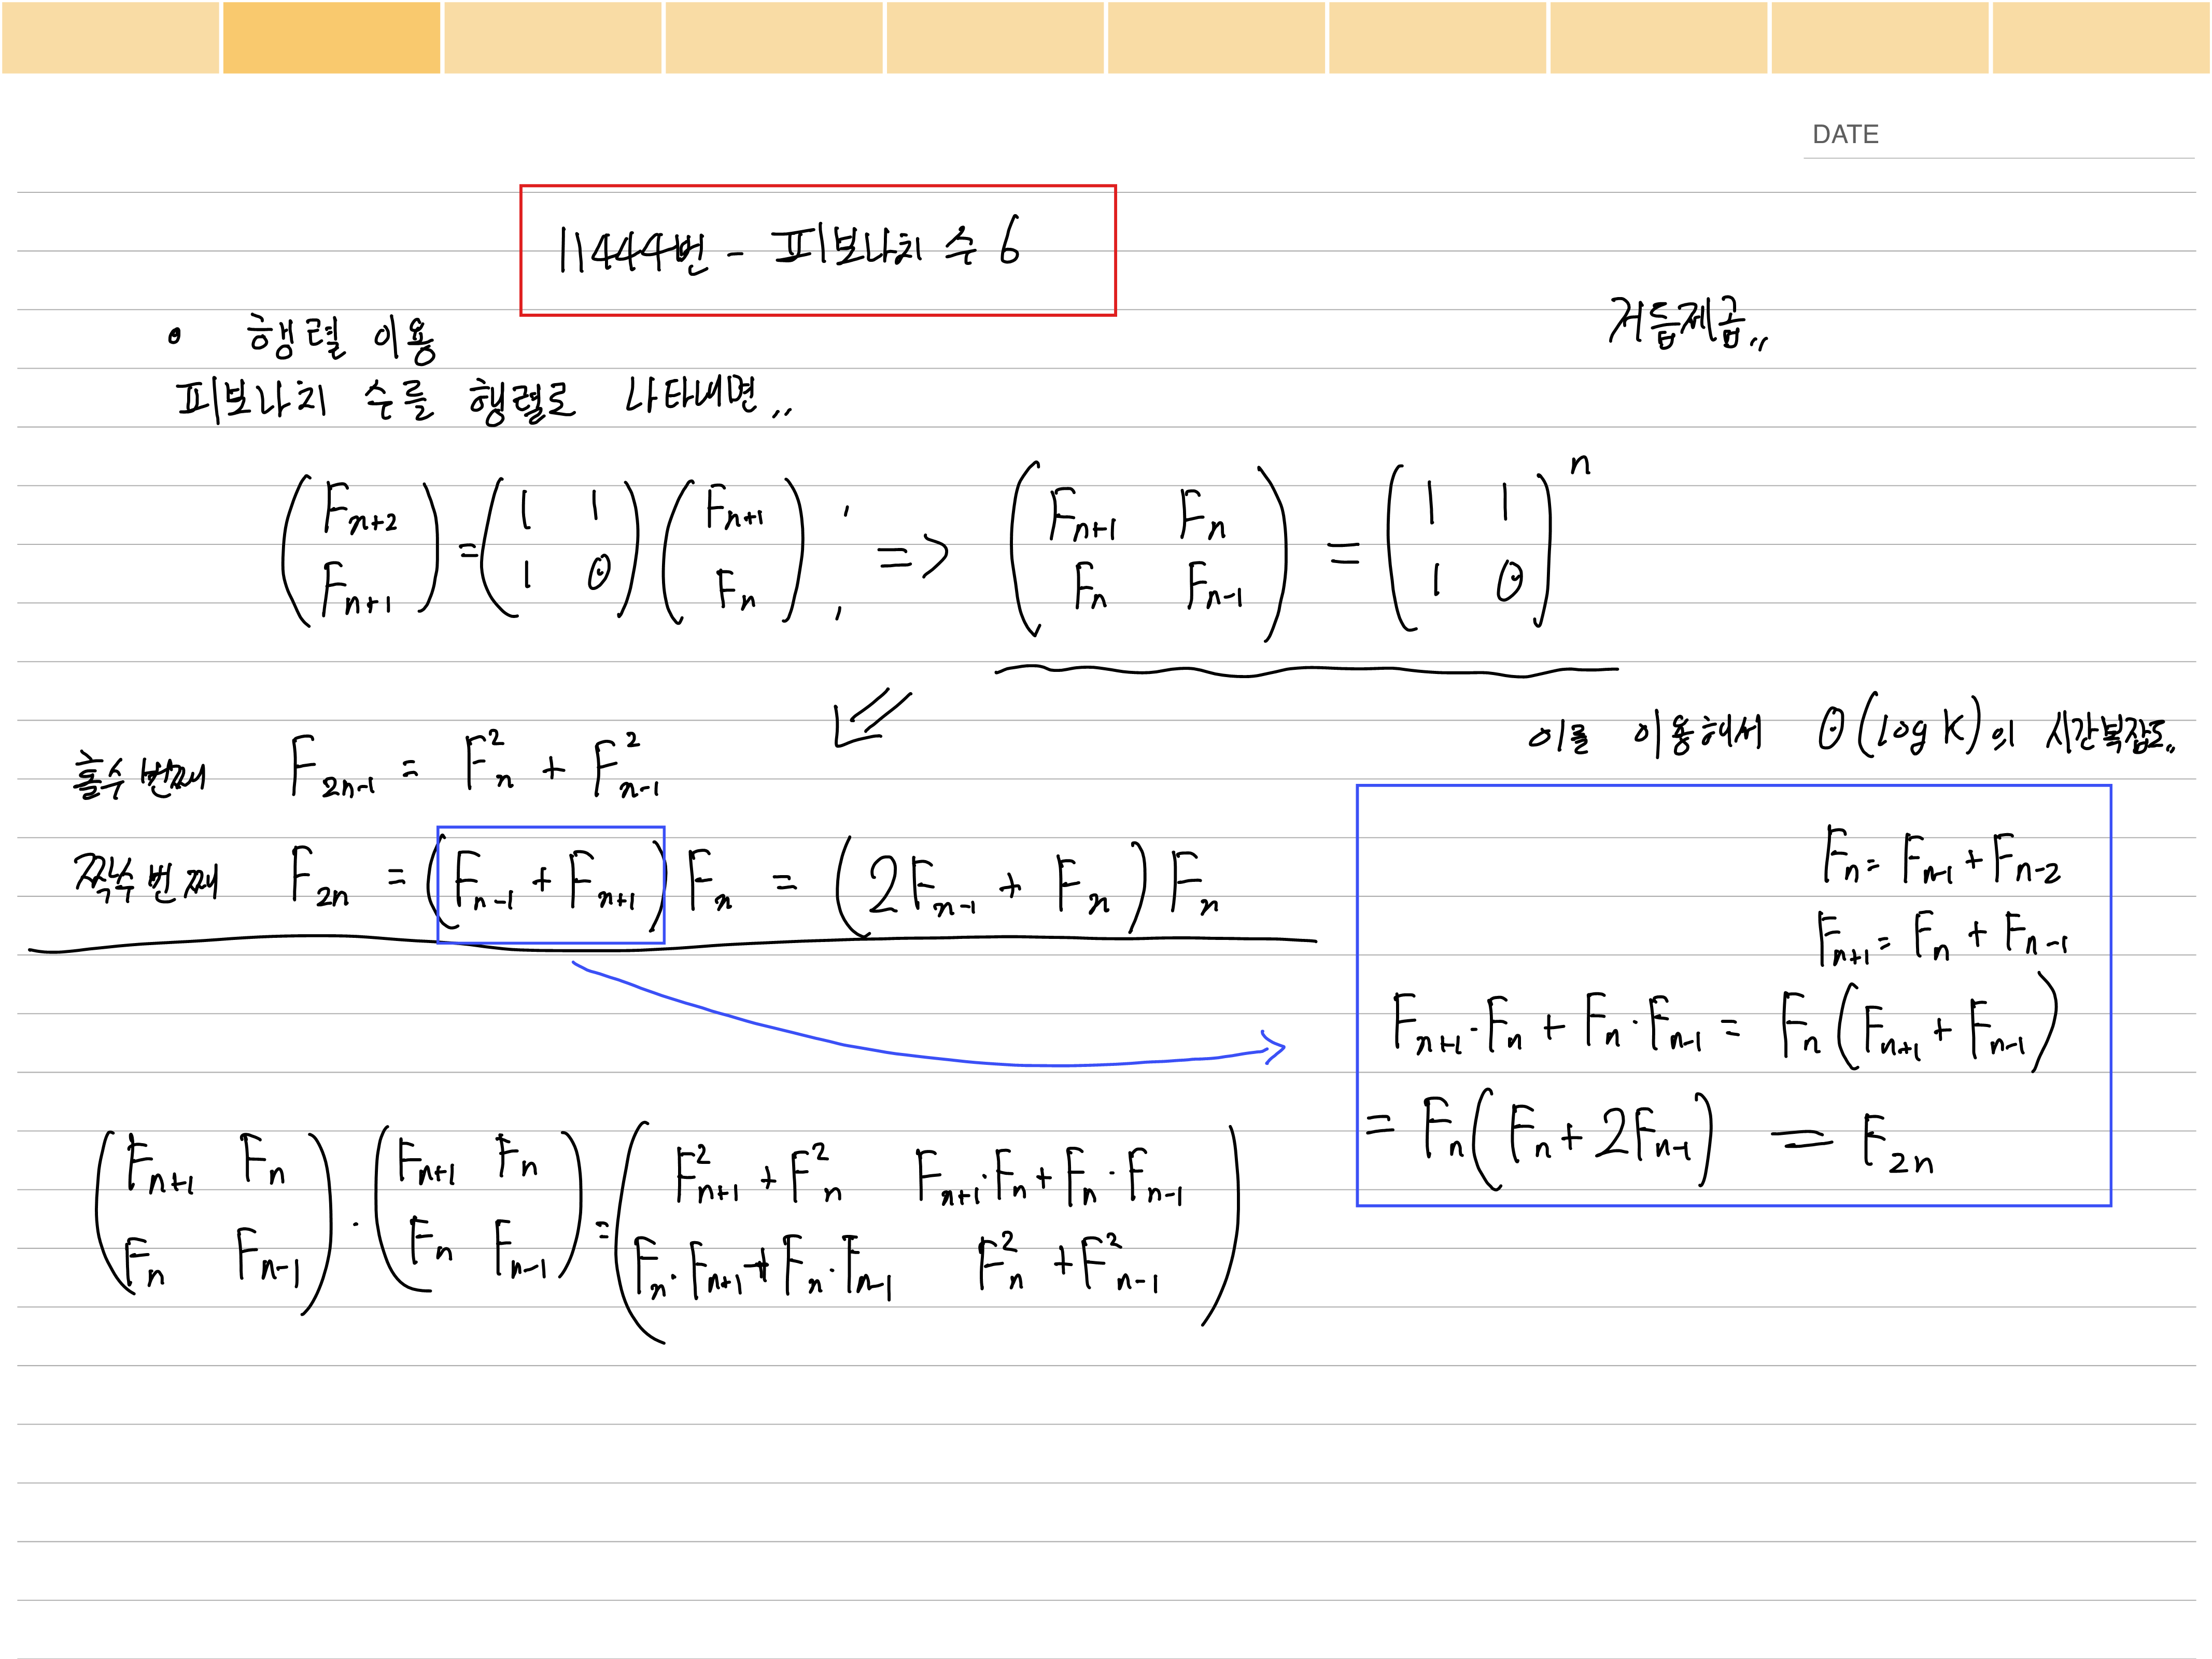 DATE
11444번 - 피보나치 수 6
거듭제곱..
• 행렬 이용
피보나치 수를 행렬로 나타내면..
(F_{n+2} ; F_{n+1}) = (1 1 ; 1 0) (F_{n+1} ; F_n) ; => (F_{n+1} F_n ; F_n F_{n-1}) = (1 1 ; 1 0)^n
이를 이용해서 O(log K)의 시간복잡도..
홀수 번째 F_{2n-1} = F_n^2 + F_{n-1}^2
짝수 번째 F_{2n} = (F_{n-1} + F_{n+1}) F_n = (2F_{n-1} + F_n) F_n
F_n = F_{n-1} + F_{n-2}
F_{n+1} = F_n + F_{n-1}
F_{n+1}·F_n + F_n·F_{n-1} = F_n (F_{n+1} + F_{n-1})
= F_n (F_n + 2F_{n-1}) = F_{2n}
(F_{n+1} F_n ; F_n F_{n-1}) · (F_{n+1} F_n ; F_n F_{n-1}) = (F_{n+1}^2 + F_n^2 F_{n+1}·F_n + F_n·F_{n-1} ; F_n·F_{n+1} + F_n·F_{n-1} F_n^2 + F_{n-1}^2)